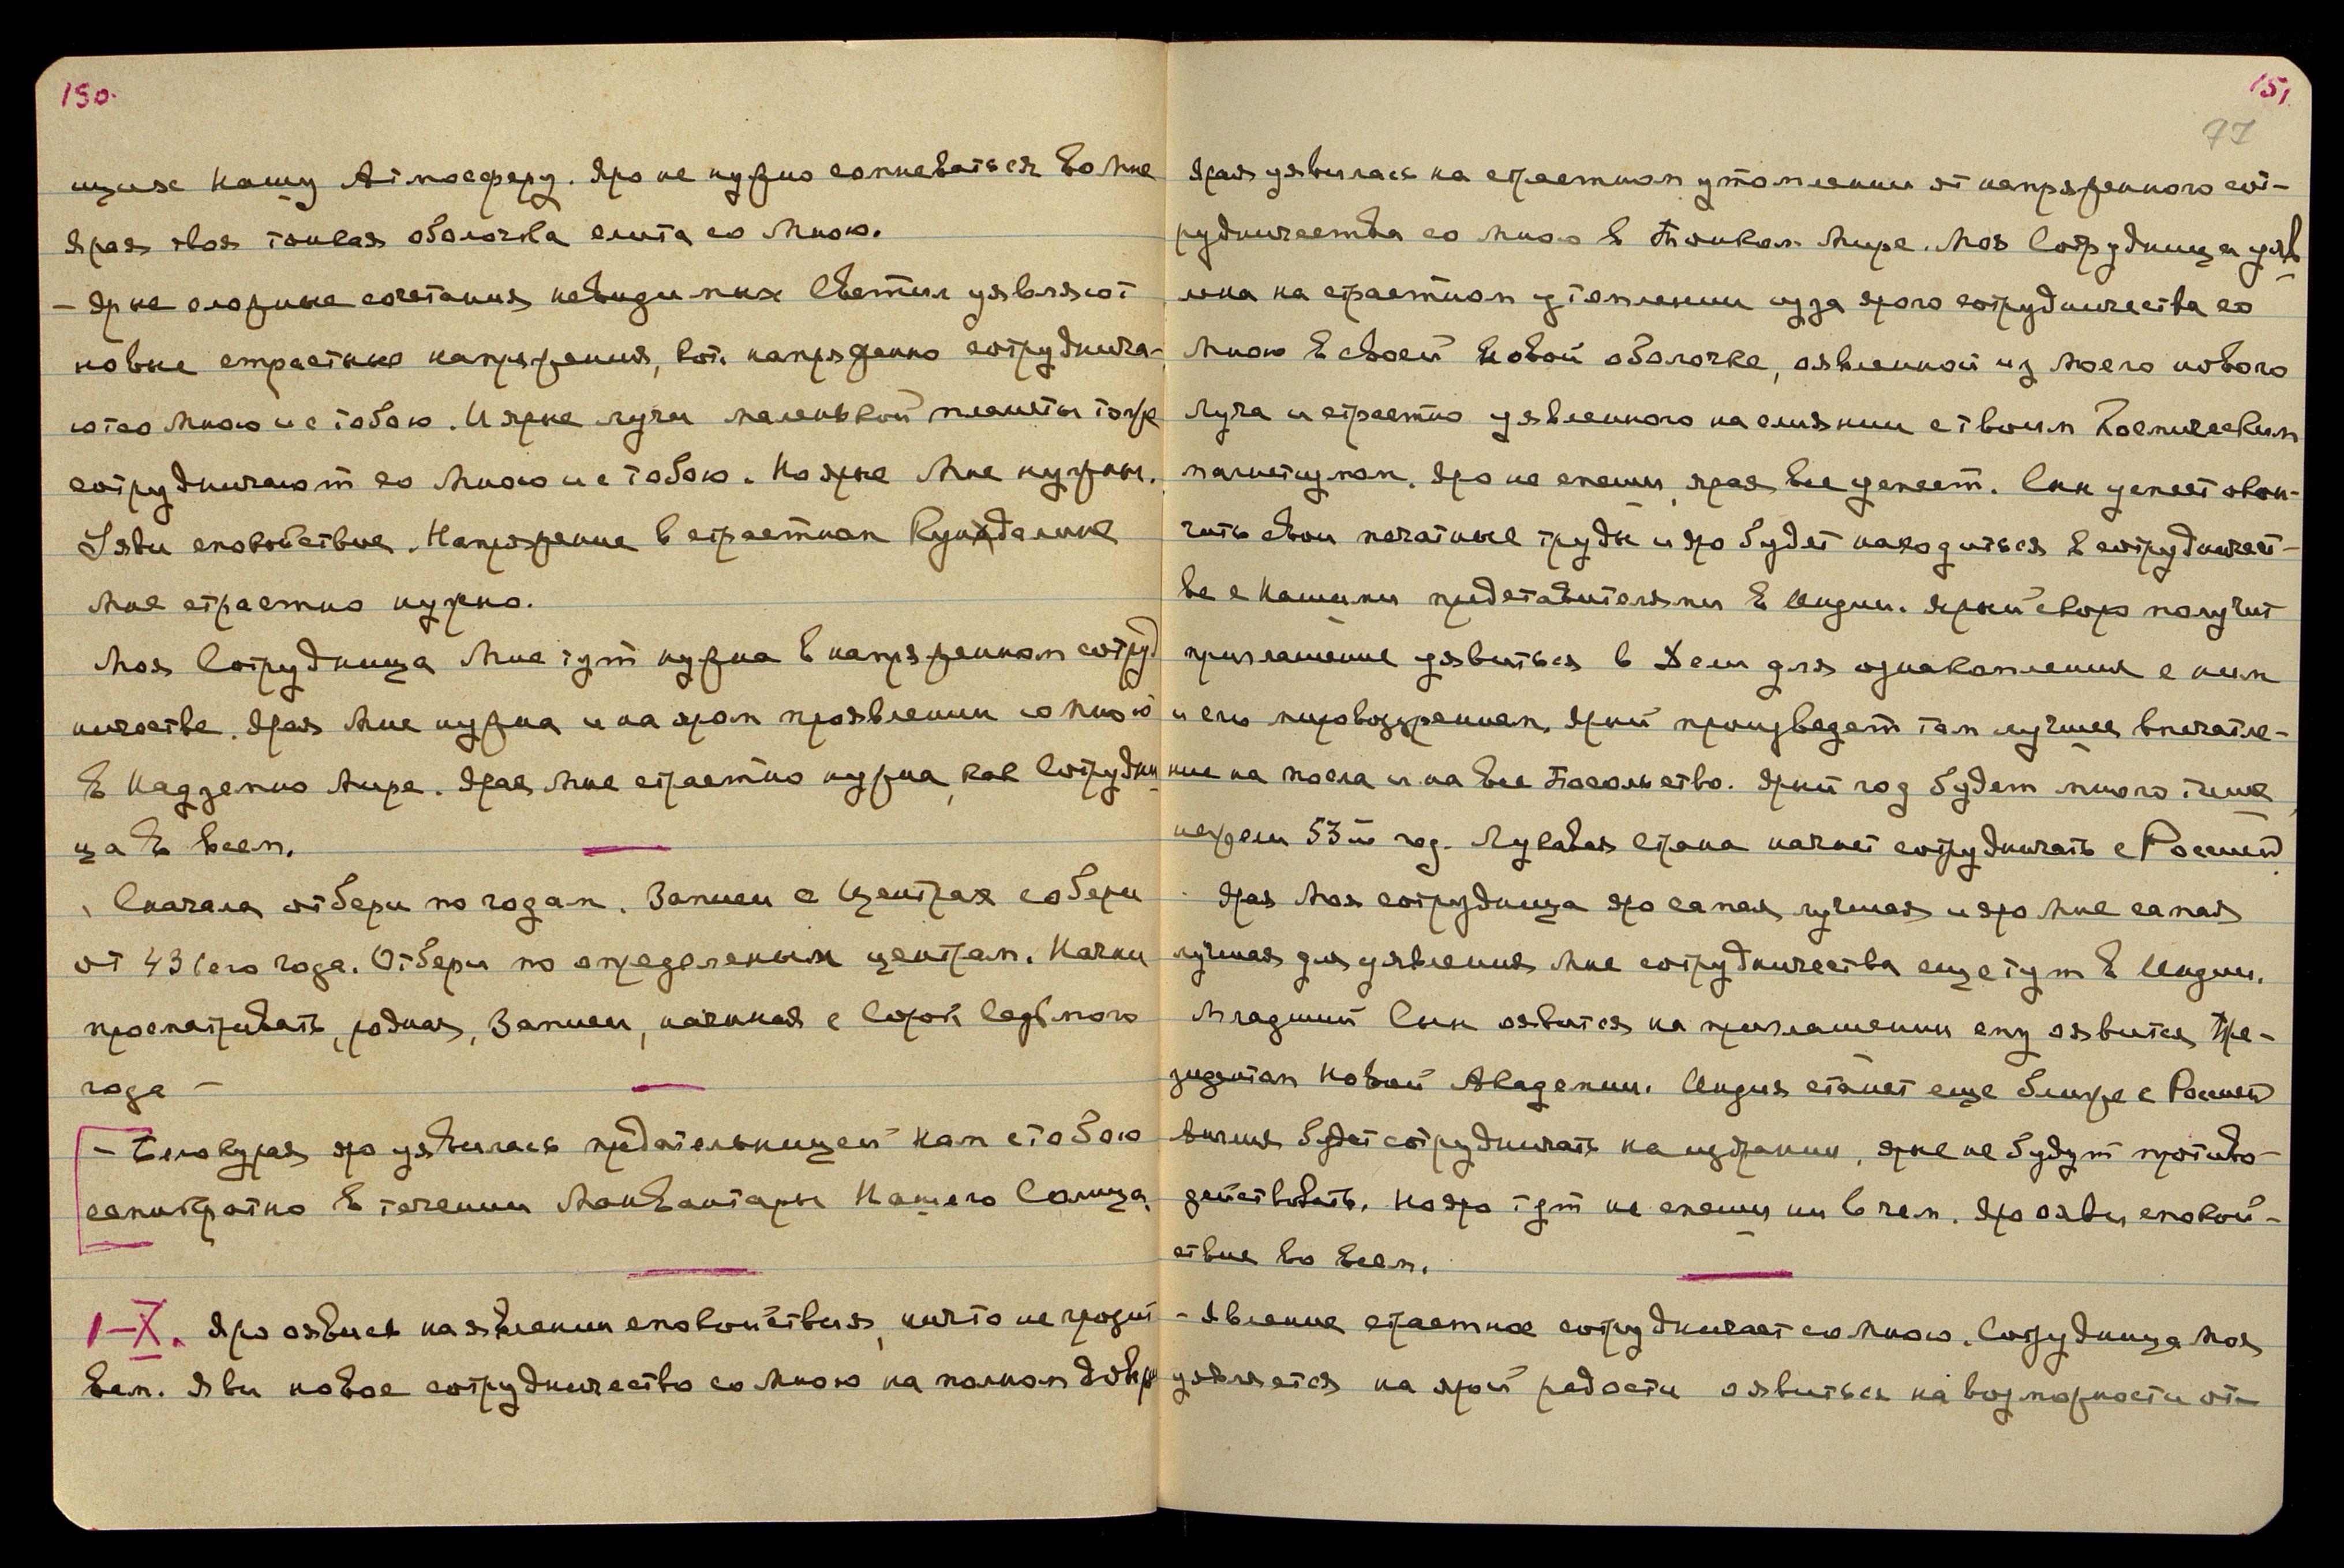 150.
щихс Нашу Атмосферу. Яро не нужно сомневаться во Мне
Ярая твоя тонкая оболочка слита со Мною.
– Ярые сложные сочетания невидимых Светил уявляют
новые страстные напряжения, вот. напряженно сотруднича-
ют со Мною и с тобою. И ярые лучи маленькой планеты тоже
сотрудничают со Мною и с тобою. Но ярые Мне нужны.
Уяви спокойствие. Напряжение в страстном Кундалине
Мне страстно нужно.
Моя Сотрудница Мне тут нужна в напряженном сотруд
ничестве. Ярая Мне нужна и на яром проявлении со Мною
в Надземно Мире. Ярая Мне страстно нужна, как Сотрудни
ца во всем.
Сначала отбери по годам. Записи о Центрах собери
от 431его года. Отбери по определеным центрам. Начни
просматривать, родная, Записи, начиная с Сорок Седьмого
года –
– Белокурая яро уявилась предательницей Нам с тобою
семикратно в течении Манвантары Нашего Солнца.
1–X. Яро оявись на явлении спокойствия, ничто не грозит
вам. Яви новое сотрудничество со Мною на полном довер
151
77
Ярая уявилась на страстном утомлении от напряженного сот-
рудничества со Мною в Тонком Мире. Моя Сотрудница уяв
лена на страстном утомлении из за ярого сотрудничества со
Мною в своей Новой оболочке, оявленной из Моего нового
Луча и страстно уявленного на слиянии с твоим Космическим
магнетизмом. Яро не спеши, ярая все успеет. Сын успеет окон-
чить свои печатные труды и яро будет находиться в сотрудничест-
ве с Нашими представителями в Индии. Ярый скоро получит
приглашение уявиться в Дели для ознакомления с ним
и его мировоззрением. Ярый произведет там лучшее впечатле-
ние на посла и на все Посольство. Ярый год будет много тише
нежели 53й год. Лукавая страна начнет сотрудничать с Россией
Ярая Моя сотрудница яро самая лучшая и яро Мне самая
лучшая для уявления Мне сотрудничества еще тут в Индии.
Младший Сын оявится на приглашении ему оявится Пре-
зидентом Новой Академии. Индия станет еще ближе с Россией
Англия будет сотрудничать на издании, ярые не будут противо-
действовать. Но яро тут не спеши ни в чем. Яро ояви спокой-
ствие во всем.
– Явление страстное сотрудничает со Мною. Сотрудница Моя
уявляется на ярой радости оявиться на возможности от-